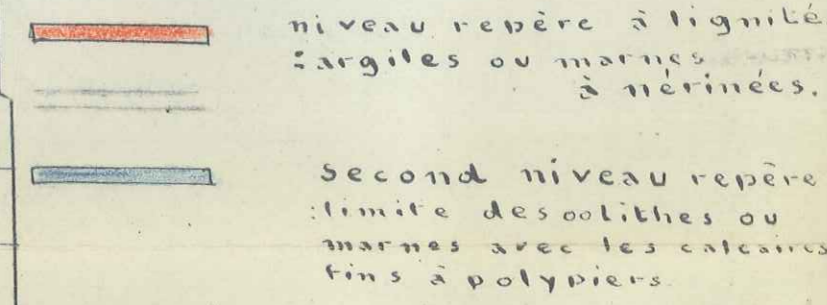 niveau repère à lignité
: argiles ou marnes
à nérinées.
second niveau repère
: limite des oolithes ou
marnes avec les calcaires
fins à polypiers